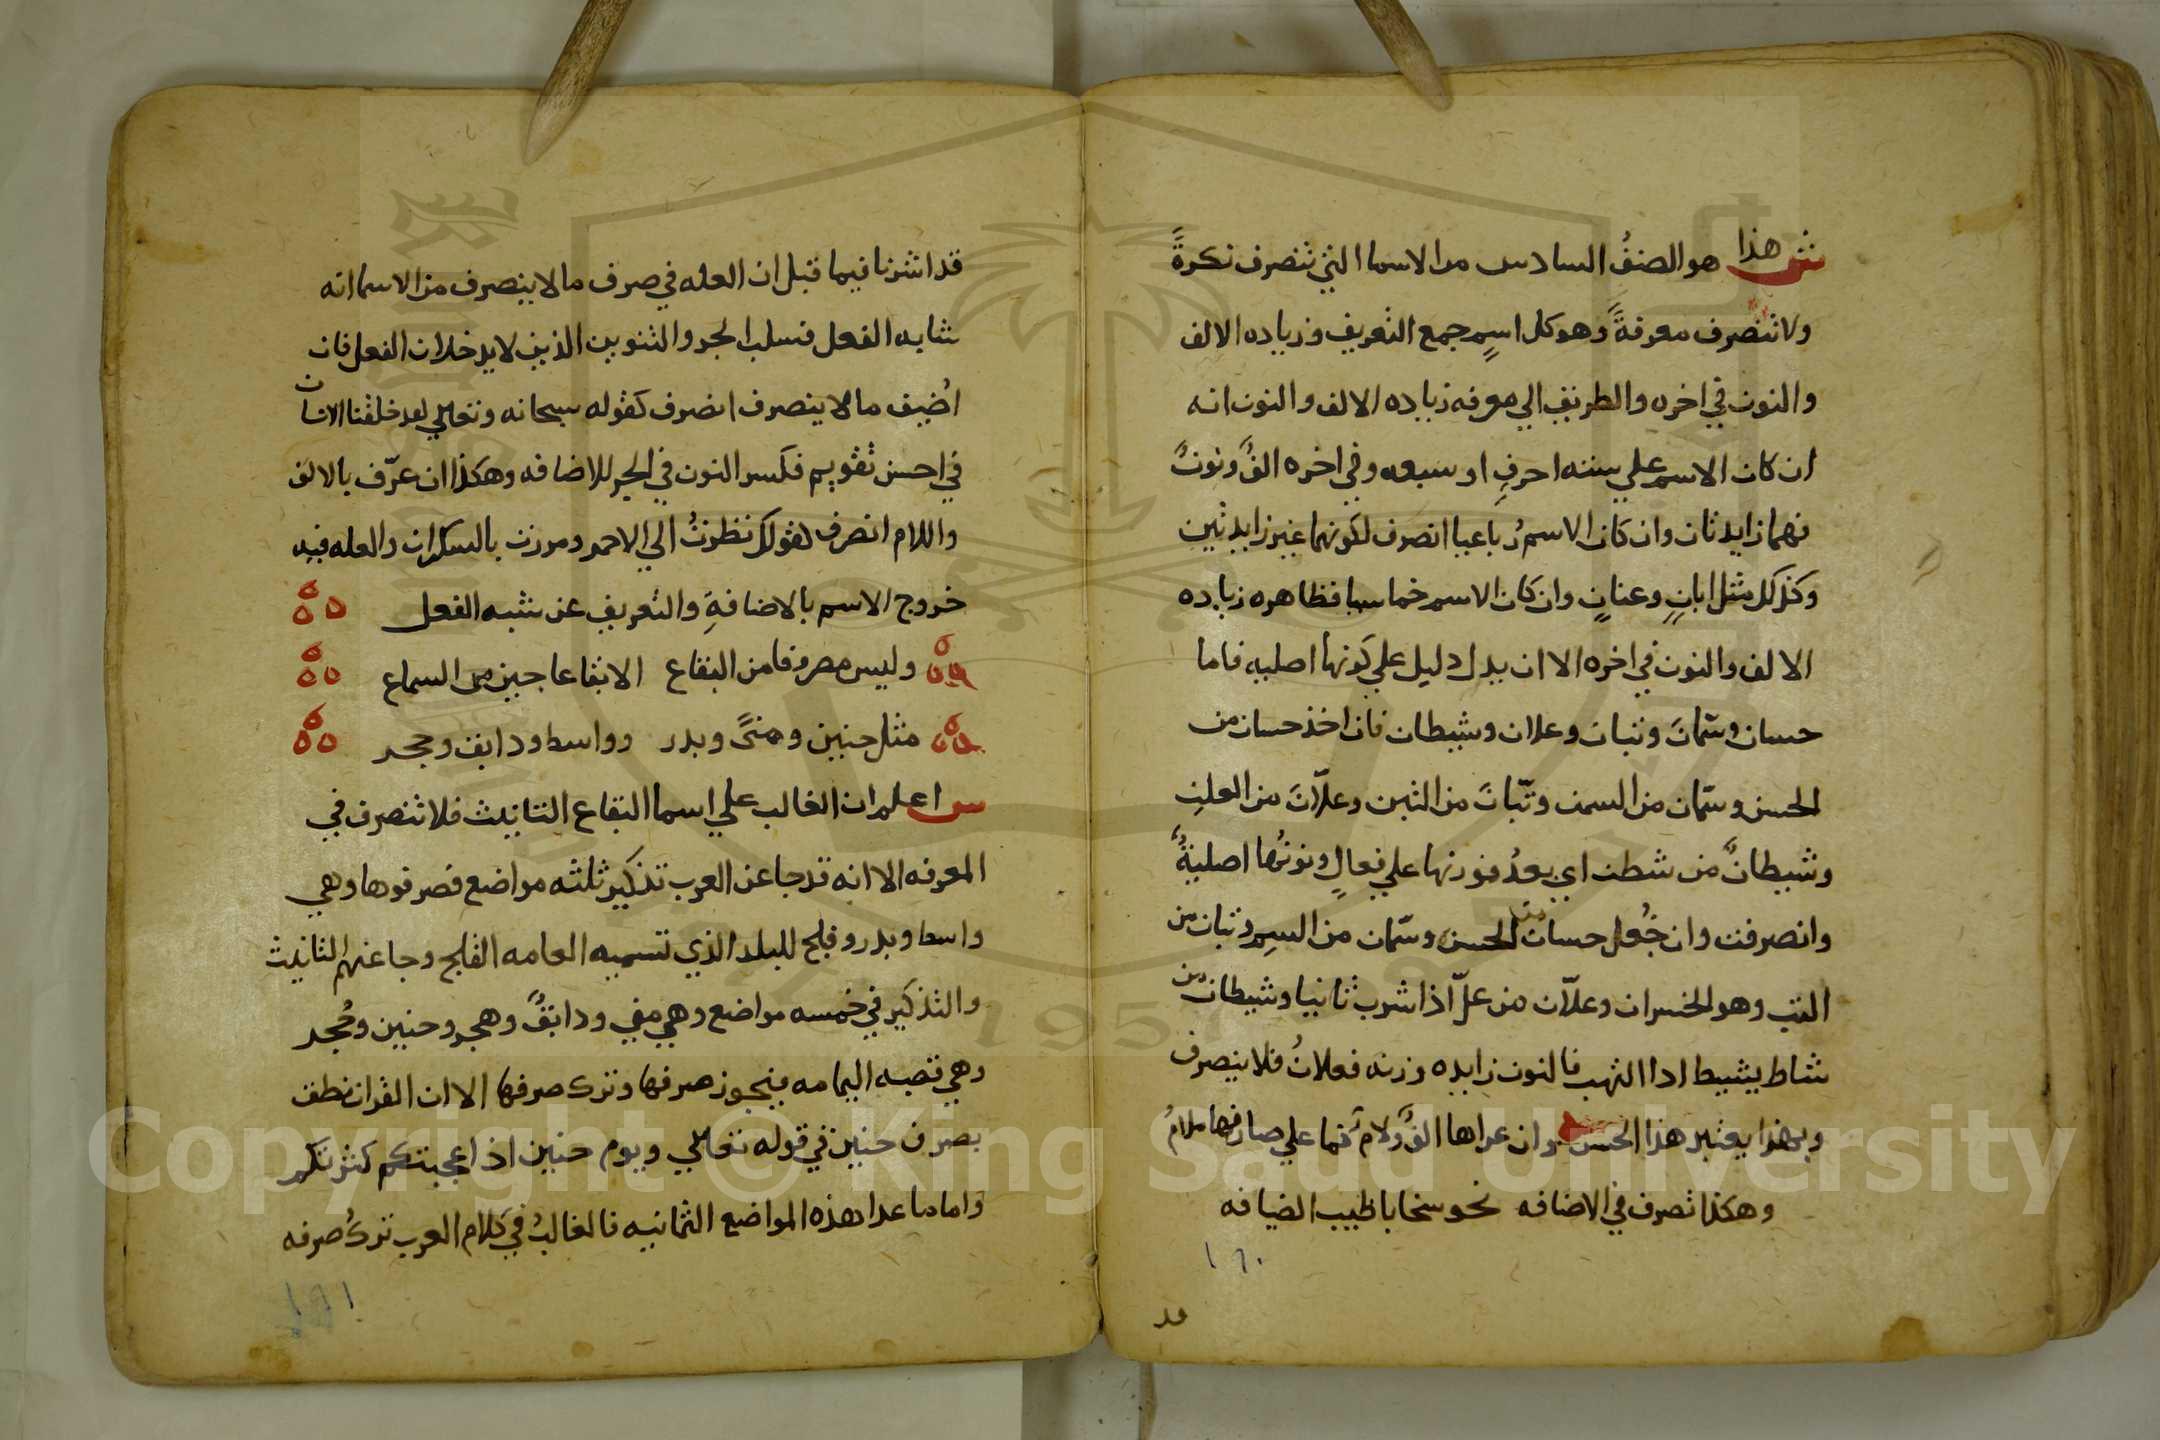 ش هذا هو الصنفُ السادس من الاسما التي تنصرف نكرةً
ولا تنصرف معرفةً وهو كل اسمٍ جمع التعريف وزياده الالف
والنون في اخره والطريق الي معرفه زياده الالف والنون انه
ان كان الاسم علي سته احرفٍ او سبعه وفي اخره الفٌ ونونٌ
فهما زايدتان وان كان الاسمُ رباعيا انصرف لكونهما غير زايدتين
وكذلك مثل ابانٍ وعنانٍ وان كان الاسم خماسيا فظاهره زياده
الالف والنون في اخره الا ان يدل دليل علي كونها اصليه فاما
حسان وسمّانَ وتبان وعلان وشيطان فان اخذ حسان من
الحسن وسمّان من السمن وتبّانَ من التبن وعلّانَ من العلنِ
وشيطانٌ من شطن اي بعدُ فوزنها علي فعالٍ ونونُها اصليةٌ
وانصرفت وان جُعل حسان من الحسن وسمّان من السمِ وتبان من
التب وهو الخسران وعلّان من علّ اذا شرب ثانيا وشيطان من
شاط يشيط اذا التهب فالنون زايده وزنه فعلانُ فلا ينصرف
وبهذا يعتبر هذا الجنس وان عراها الفٌ ولامٌ فما علي صارفها ملامُ
وهكذا تصرف في الاضافه نحو سخا باطيب الضيافه
١٦٠
قد
قد اشرنا فيما قبل ان العله في صرف ما لا ينصرف من الاسما انه
شابه الفعل فسلب الجر والتنوين الذين لا يدخلان الفعل فان
اُضيف ما لا ينصرف انصرف كقوله سبحانه وتعالي لقد خلقنا الانسان
في احسن تقويم فكسر النون في الجر للاضافه وهكذا ان عرّف بالالف
واللام انصرف كقولك نظرتُ الي الاحمر ومررت بالسكران والعله فيه
خروج الاسم بالاضافةِ والتعريف عن شبه الفعل
وليس مصروفا من البقاع الا بقاعا جين في السماع
مثل حنين ومنيً وبدر وواسط ودابق وحجر
ش اعلم ان الغالب علي اسما البقاع التانيث فلا تنصرف في
المعرفه الا انه قد جا عن العرب تذكير ثلثه مواضع فصرفوها وهي
واسط وبدر وفلج للبلد الذي تسميه العامه الفلج وجا عنهم التانيث
والتذكير في خمسه مواضع وهي مني ودابقٌ وهجر وحنين وحُجر
وهي قصبه اليمامه فيجوز صرفها وترك صرفها الا ان القران نطق
بصرف حنين في قوله تعالي ويوم حنين اذ اعجبتكم كثرتكم
واما ما عدا هذه المواضع الثمانيه فالغالبُ في كلام العرب تركُ صرفه
١٦١
Copyright © King Saud University
1957